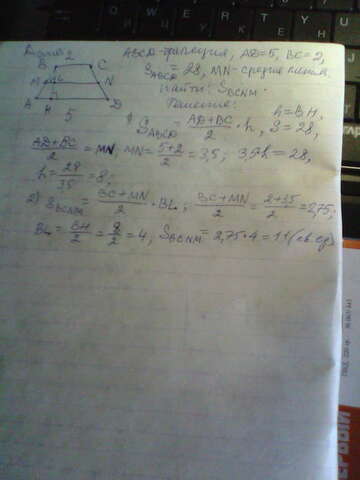 Дано: ABCD-трапеция, AD=5, BC=2,
S ABCD = 28, MN-средняя линия.
Найти: S BCNM.
Решение:
h=BH,
1) S ABCD = AD+BC/2 · h, S=28,
AD+BC/2 = MN, MN = 5+2/2 = 3,5; 3,5h = 28,
h = 28/3,5 = 8;
2) S BCNM = BC+MN/2 · BL; BC+MN/2 = 2+3,5/2 = 2,75;
BL = BH/2 = 8/2 = 4, S BCNM = 2,75·4 = 11 (кв.ед)
B 2 C
M L N
A H D
5